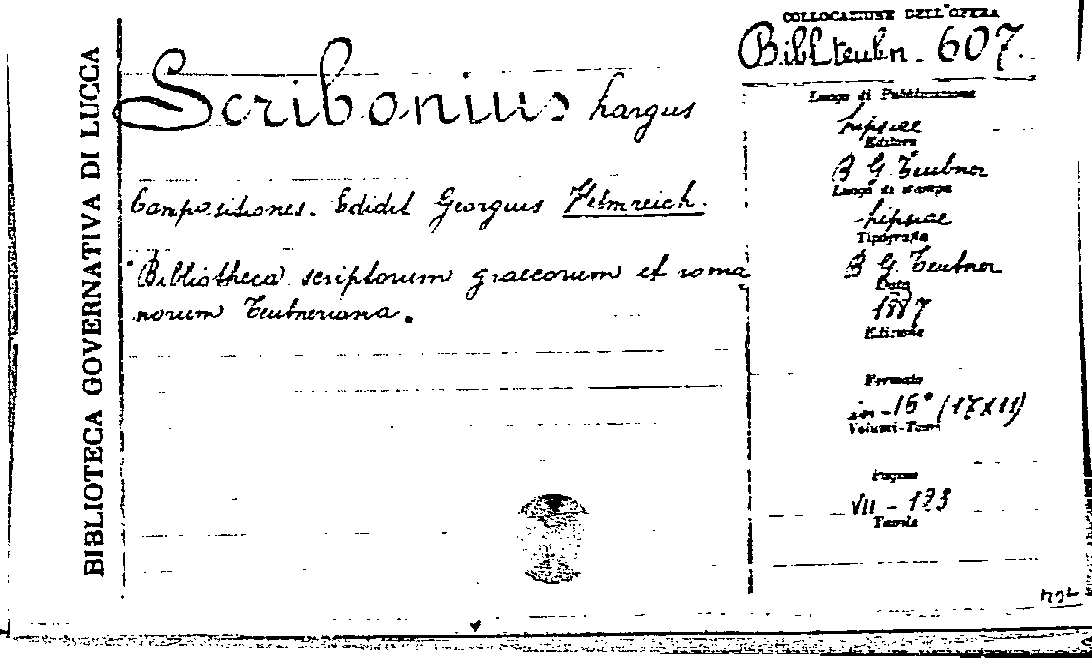 BIBLIOTECA GOVERNATIVA DI LUCCA
Scribonius Largus
Compositiones. Edidit Georgius Helmreich.
Bibliotheca scriptorum graecorum et roma
norum Teubneriana.
COLLOCAZIONE DELL'OPERA
Bibl. teubn. 607.
Luogo di Pubblicazione
Lipsiae
Editore
B G. Teubner
Luogo di stampa
Lipsiae
Tipografia
B G. Teubner
Data
1887
Edizione
Formato
in-16° (17x11)
Volumi-Tomi
Pagine
VII - 123
Tavole